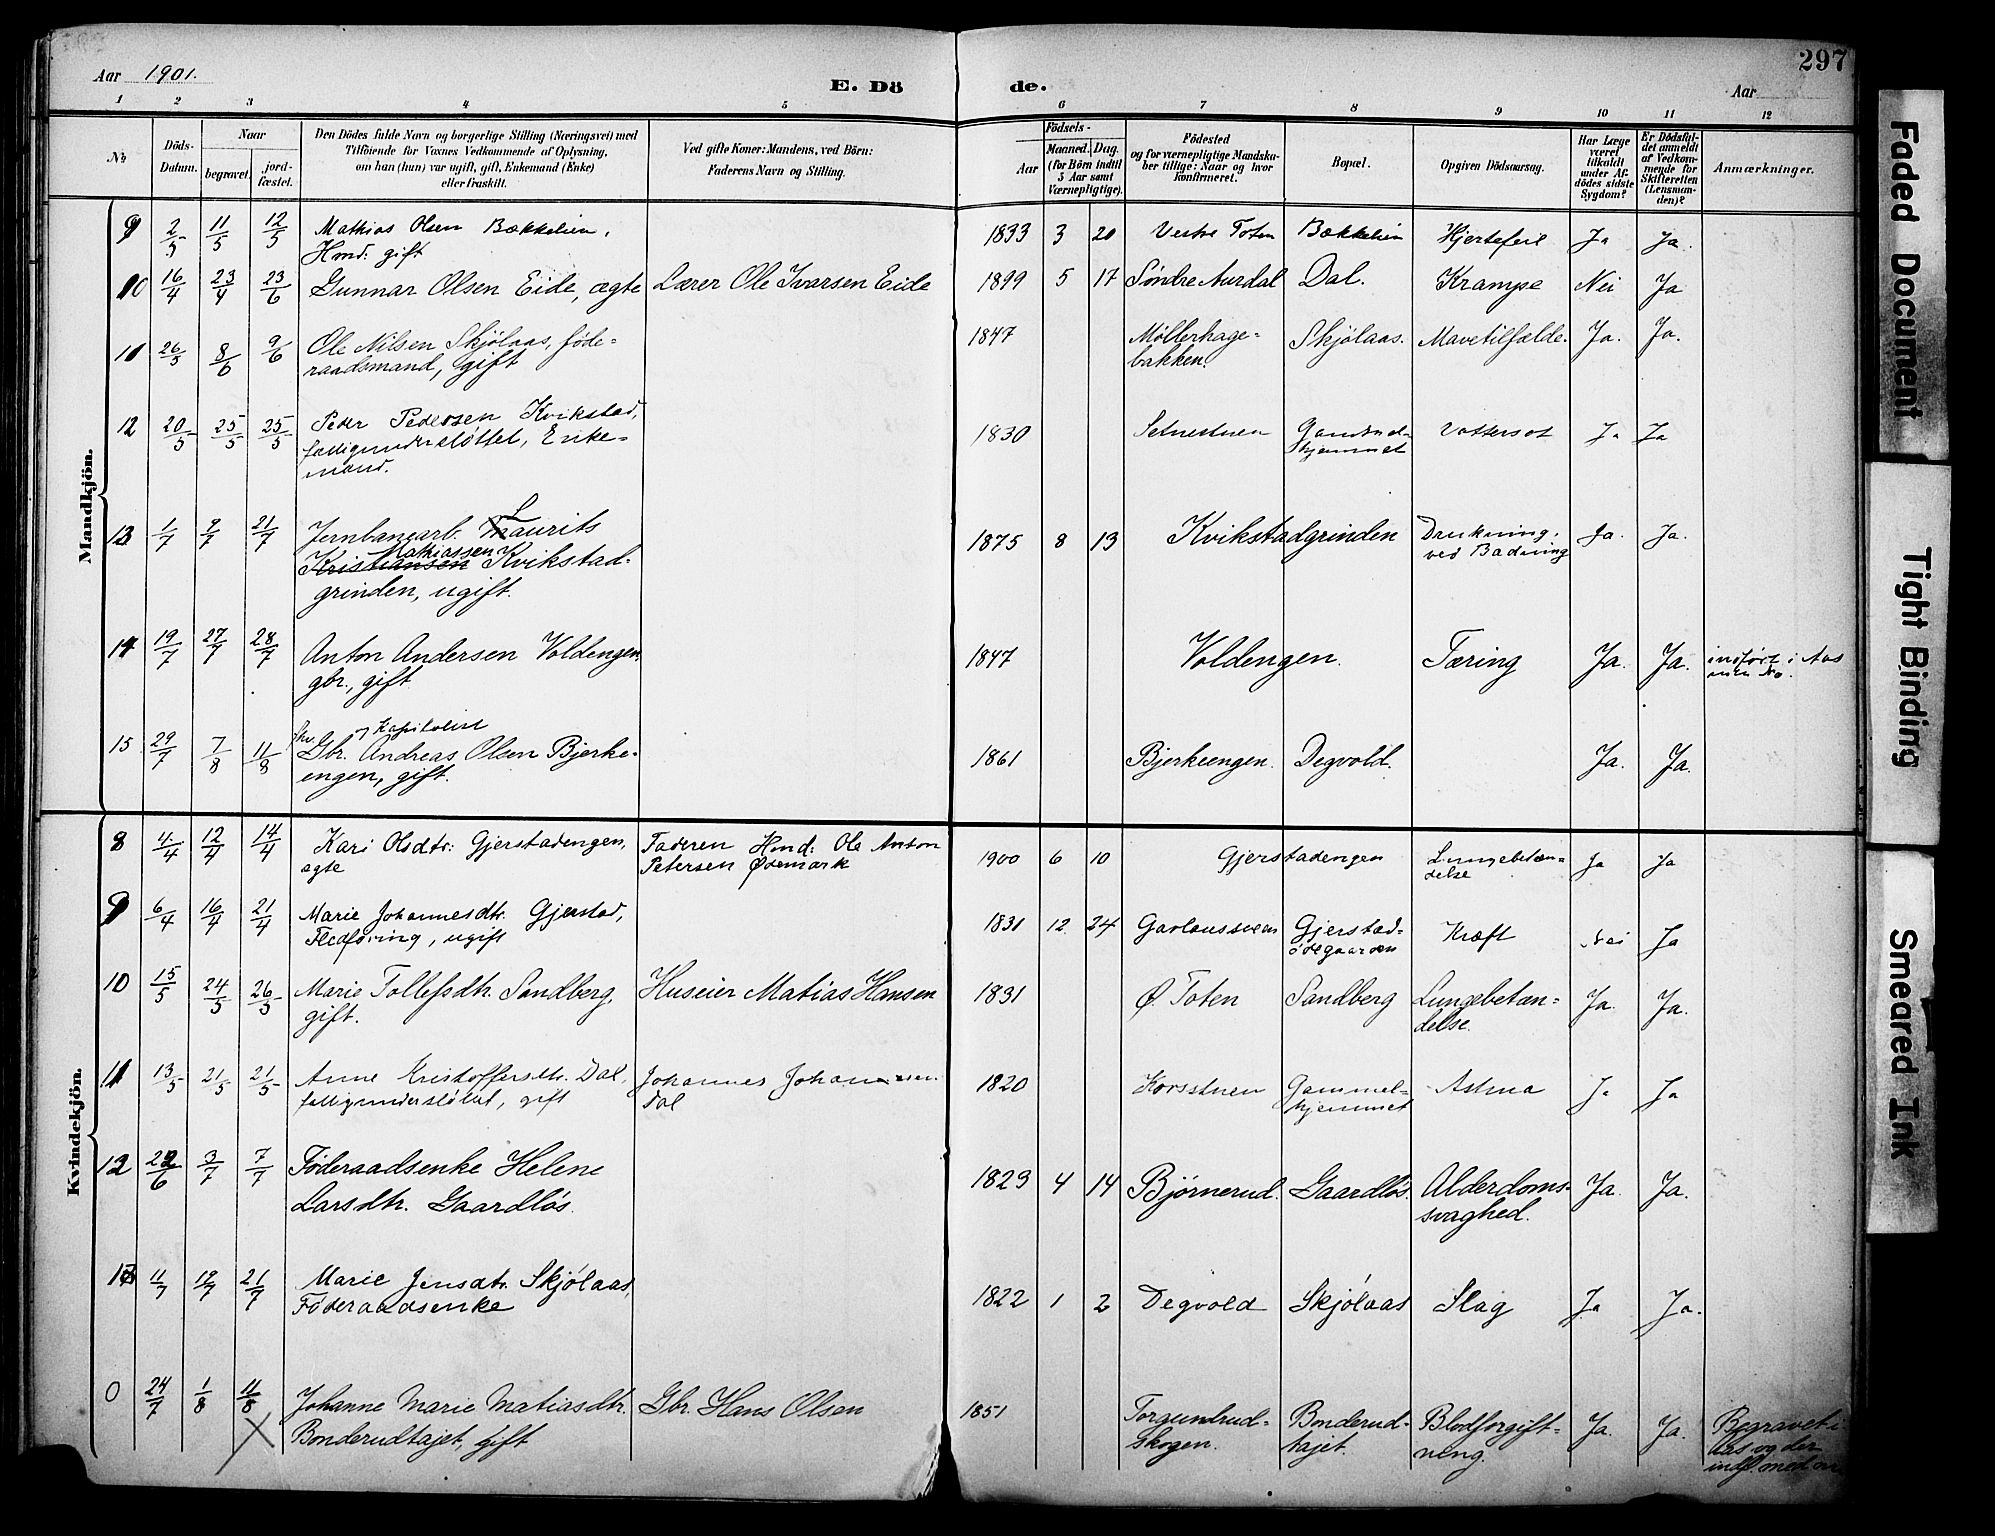 297
Aar 1901.
E. Dö
de.
Aar
1 2 3 4 5 6 7 8 9 10 11 12
No
Döds-
Datum.
Naar
begravet.
jord-
fæstet.
Den Dödes fulde Navn og borgerlige Stilling (Næringsvei) med
Tilföiende for Voxnes Vedkommende af Oplysning,
om han (hun) var ugift, gift, Enkemand (Enke)
eller fraskilt.
Ved gifte Koner: Mandens, ved Börn:
Faderens Navn og Stilling.
Födsels-
Aar
Maaned.
Dag.
(for Börn indtil
5 Aar samt
Værnepligtige).
Födested
og for værnepligtige Mandska-
ber tillige: Naar og hvor
konfirmeret.
Bopæl.
Opgiven Dödsaarsag.
Har Læge
været
tilkaldt
under Af-
dödes sidste
Sygdom?
Er Dödsfal-
det anmeldt
af Vedkom-
mende for
Skifteretten
(Lensman-
den)?
Anmærkninger.
Mandkjön.
9 2/5 11/5 12/5 Mathias Olsen Bækkelien, 1833 3 20 Vestre Toten Bækkelien Hjertefeil Ja Ja.
Hmd: gift
10 16/4 23/4 23/6 Gunnar Olsen Eide, ægte Lærer Ole Ivarsen Eide 1899 5 17 Söndre Aurdal Dal. Krampe Nei Ja
11 26/5 8/6 9/6 Ole Nilsen Skjölaas, föde- 1847 Möllerhage- Skjölaas. Mavetilfælde. Ja. Ja.
raadsmand, gift bakken.
12 20/5 25/5 25/5 Peder Pedersen Kvikstad, 1830 Vattersot Ja Ja
fattigunderstöttet, Enke- hjemmet
mand.
13 1/7 9/7 21/7 Jernbanearb. Laurits 1875 8 13 Kvikstadgrinden Drukning, Ja. Ja.
Mathiassen ved Badning
Kristiansen Kvikstad-
grinden, ugift.
14 19/7 27/7 28/7 Anton Andersen Voldengen, 1847 Voldengen. Tæring Ja. Ja. indfört i Aas
gbr., gift No.
15 29/7 7/8 11/8 fhv. og Kapitalist
Gbr. Andreas Olsen Bjerke- 1861 Bjerkeengen. Degvold. Ja. Ja.
engen, gift.
Kvindekjön.
8 4/4 12/4 14/4 Kari Olsdtr: Gjerstadengen, Faderen Hmd: Ole Anton 1900 6 10 Gjerstadengen Lungebetæn- Ja Ja
ægte Petersen Ödemark delse
9 6/4 16/4 21/4 Marie Johannesdtr. Gjerstad, 1831 12 24 Gjerstad- Kræft Nei Ja
Fledföring, ugift ödegaarden
10 15/5 24/5 26/5 Marie Tollefsdtr. Sandberg, Huseier Matias Hansen 1831 Ø. Toten Sandberg Lungebetæn- Ja. Ja.
gift. delse.
11 13/5 21/5 21/5 Anne Kristoffersdtr. Dal, Johannes Johannesen 1820 Korsstuen Gammel- Astma Ja Ja
fattigunderstöttet, gift Dal hjemmet
12 22/6 3/7 7/7 Föderaadsenke Helene 1823 4 14 Björnerud. Gaardlös. Alderdoms- Ja. Ja.
Larsdtr. Gaardlös. svaghed.
13 11/7 19/7 21/7 Marie Jensdtr. Skjölaas, 1822 1 2 Degvold Skjölaas Slag Ja Ja.
Föderaadsenke
0 24/7 1/8 11/8 Johanne Marie Matiasdtr. Gbr. Hans Olsen 1851 Torgundrud- Bonderud- Blodforgift- Ja. Ja. Begravet i
Bonderudtajet, gift skogen. tajet. ning. Aas og der
indf. med
Faded Document
Tight Binding
Smeared Ink